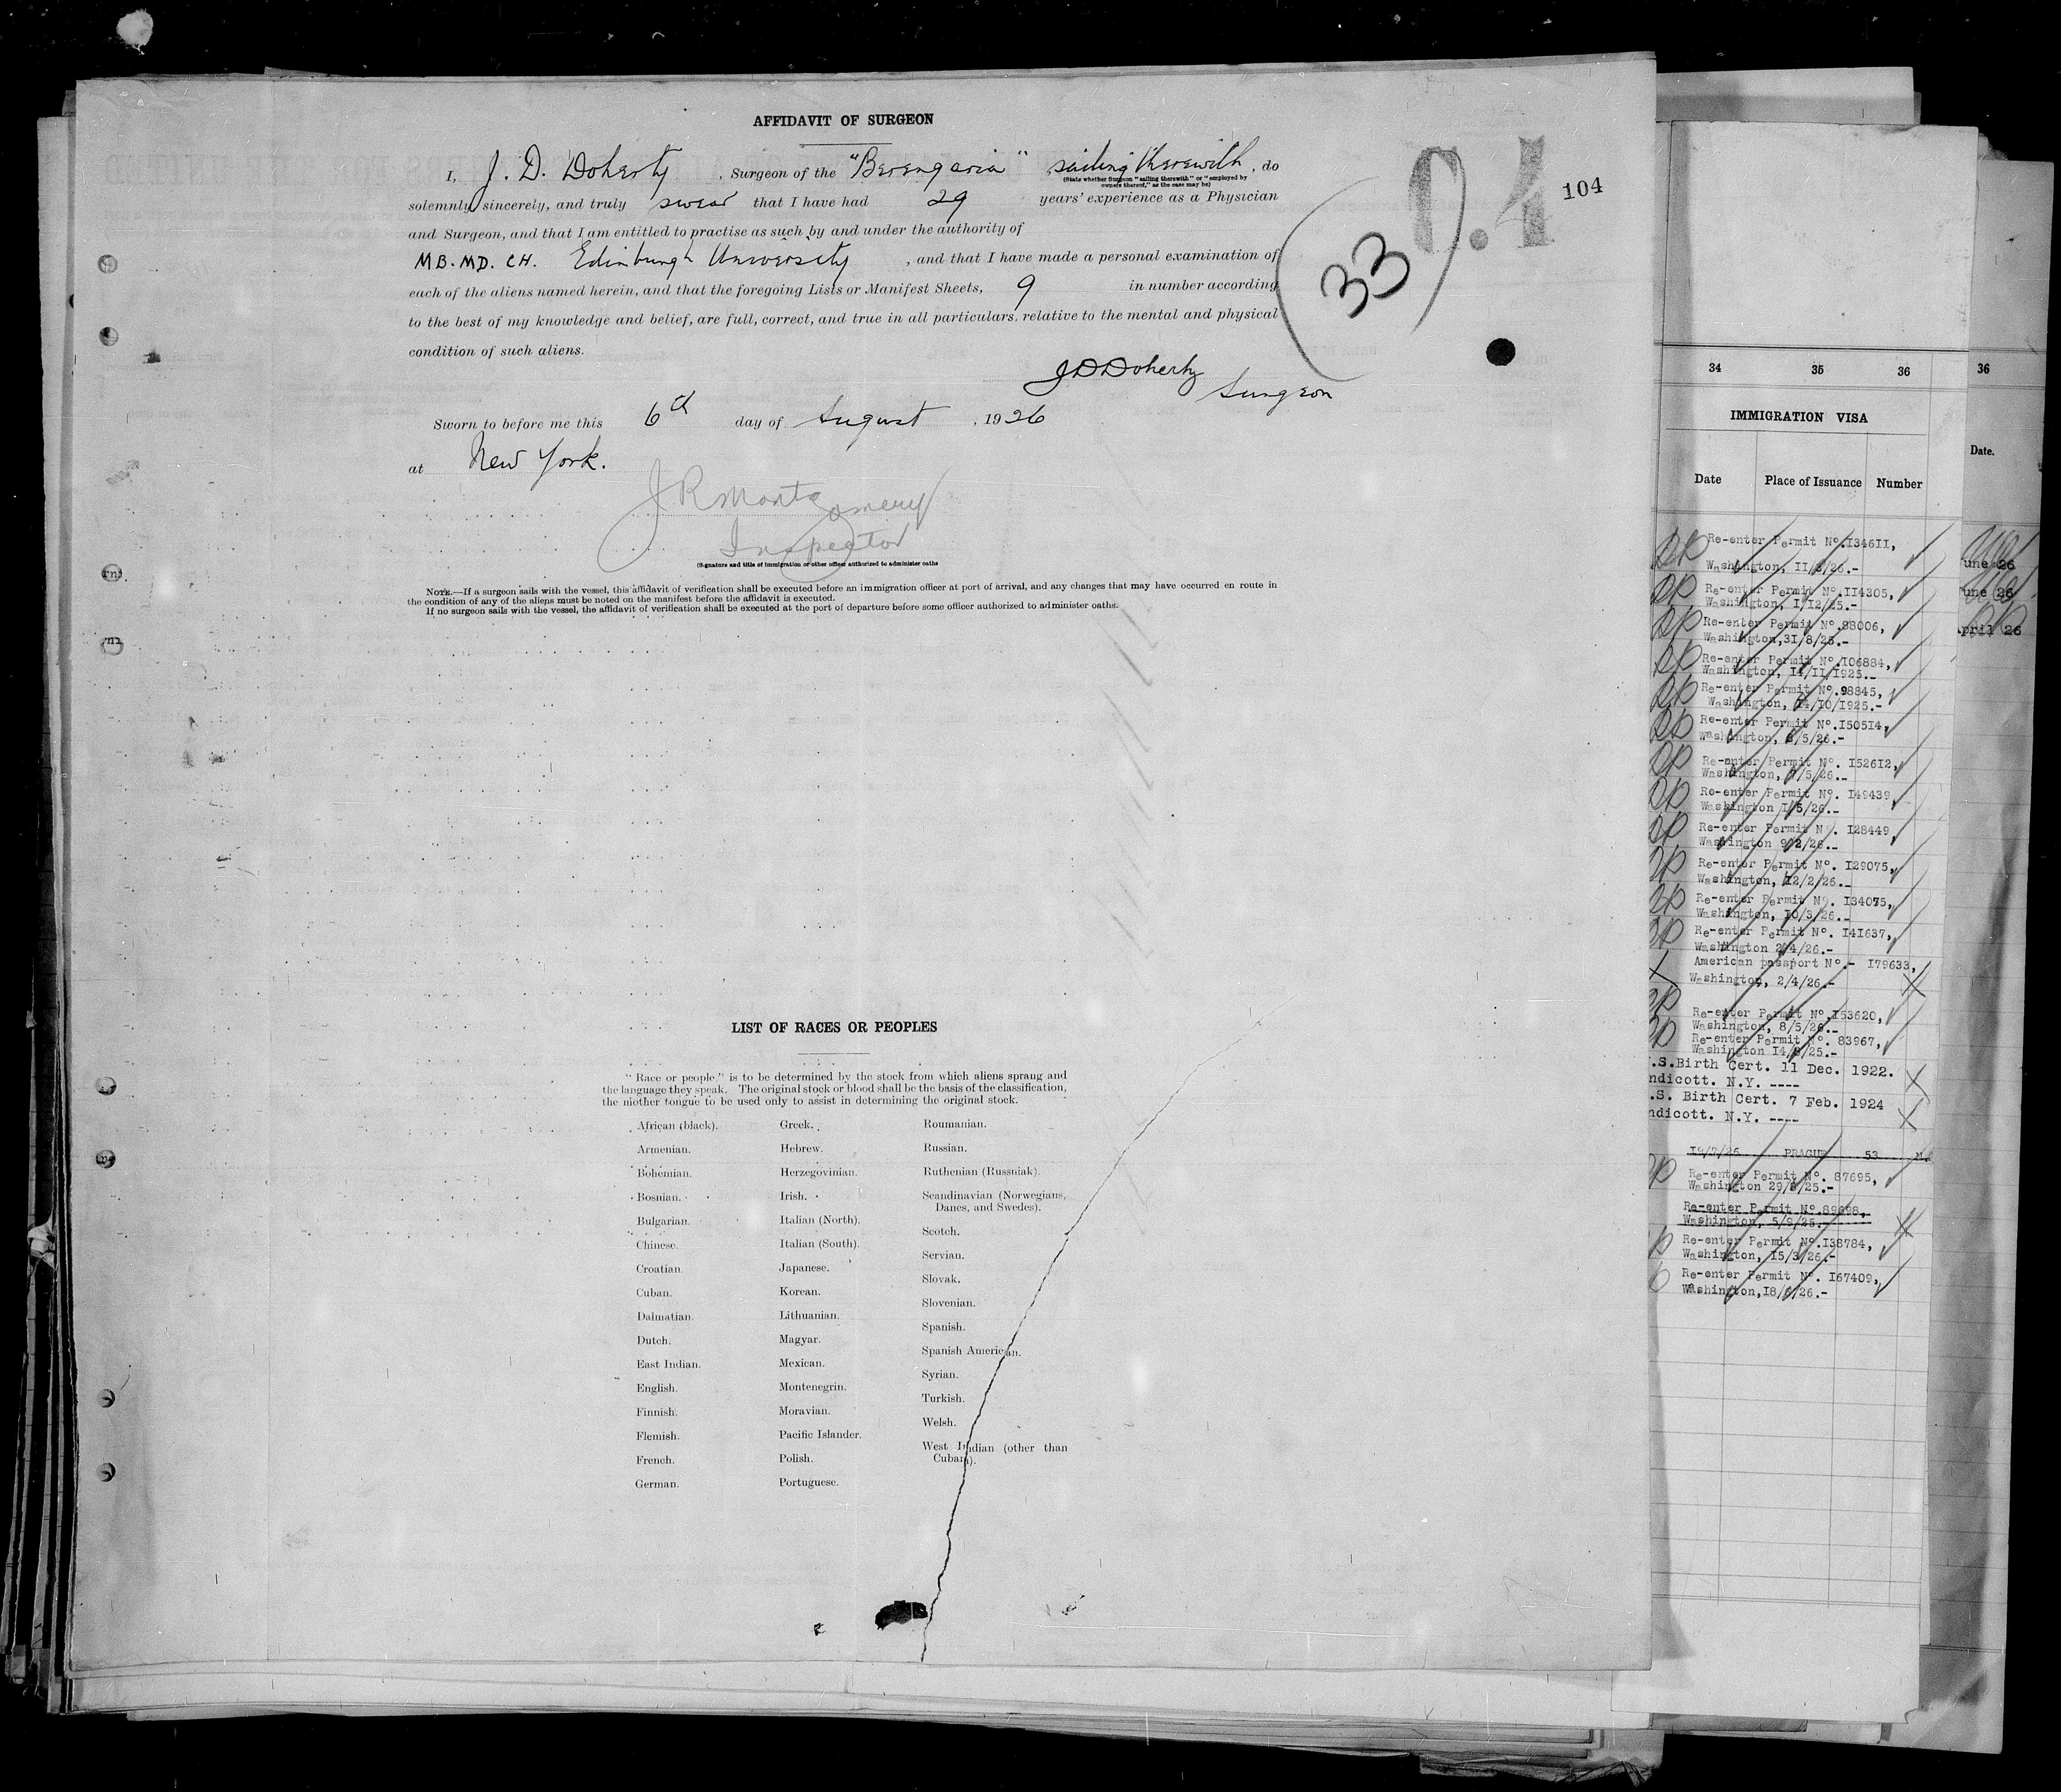 AFFIDAVIT OF SURGEON
I, J. D. Doherty, Surgeon of the "Berengaria" sailing therewith, do
(State whether Surgeon "sailing therewith" or "employed by
owners thereof," as the case may be)
solemnly, sincerely, and truly swear that I have had 29 years' experience as a Physician
and Surgeon, and that I am entitled to practise as such by and under the authority of
MB. MD. CH. Edinburgh University, and that I have made a personal examination of
each of the aliens named herein, and that the foregoing Lists or Manifest Sheets, 9 in number according
to the best of my knowledge and belief, are full, correct, and true in all particulars, relative to the mental and physical
condition of such aliens.
JDDoherty
Surgeon
Sworn to before me this 6th day of August, 1926
at New York.
J R Montgomery
Inspector
(Signature and title of immigration or other officer authorized to administer oaths
NOTE.—If a surgeon sails with the vessel, this affidavit of verification shall be executed before an immigration officer at port of arrival, and any changes that may have occurred en route in
the condition of any of the aliens must be noted on the manifest before the affidavit is executed.
If no surgeon sails with the vessel, the affidavit of verification shall be executed at the port of departure before some officer authorized to administer oaths.
104
33
LIST OF RACES OR PEOPLES
"Race or people" is to be determined by the stock from which aliens sprang and
the language they speak. The original stock or blood shall be the basis of the classification,
the mother tongue to be used only to assist in determining the original stock.
African (black).
Armenian.
Bohemian.
Bosnian.
Bulgarian.
Chinese.
Croatian.
Cuban.
Dalmatian.
Dutch.
East Indian.
English.
Finnish.
Flemish.
French.
German.
Greek.
Hebrew.
Herzegovinian.
Irish.
Italian (North).
Italian (South).
Japanese.
Korean.
Lithuanian.
Magyar.
Mexican.
Montenegrin.
Moravian.
Pacific Islander.
Polish.
Portuguese.
Roumanian.
Russian.
Ruthenian (Russniak).
Scandinavian (Norwegians,
Danes, and Swedes).
Scotch.
Servian.
Slovak.
Slovenian.
Spanish.
Spanish American.
Syrian.
Turkish.
Welsh.
West Indian (other than
Cuban).
34 35 36
IMMIGRATION VISA
Date Place of Issuance Number
Re-enter Permit No.134611,
Washington, 11/3/26.-
Re-enter Permit No.114305,
Washington, 1/12/25.-
Re-enter Permit No.88006,
Washington,31/8/25.-
Re-enter Permit No.106884,
Washington, 14/11/1925.-
Re-enter Permit No.98845,
Washington, 14/10/1925.-
Re-enter Permit No.150514,
Washington, 6/5/26.-
Re-enter Permit No. 152612,
Washington, /5/26.-
Re-enter Permit No. 149439
Washington 1/5/26.-
Re-enter Permit No. 128449,
Washington 9/2/26.-
Re-enter Permit No. 129075,
Washington, 12/2/26.-
Re-enter Permit No. 134075,
Washington, 10/3/26.-
Re-enter Permit No. 141637,
Washington 2/4/26.-
American passport No.- 179633,
Washington, 2/4/26.-
Re-enter Permit No.153620,
Washington, 8/5/26.-
Re-enter Permit No. 83967,
Washington 14/8/25.-
.S.Birth Cert. 11 Dec. 1922.
ndicott. N.Y. ----
.S. Birth Cert. 7 Feb. 1924
ndicott. N.Y. ----
19/7/26 PRAGUE 53
Re-enter Permit No. 87695,
Washington 29/8/25.-
Re-enter Permit No.89698,
Washington, 5/9/25.-
Re-enter Permit No.138784,
Washington, 15/3/26.-
Re-enter Permit No. 167409,
Washington,18/6/26.-
36
Date.
une 26
une 26
pril 26